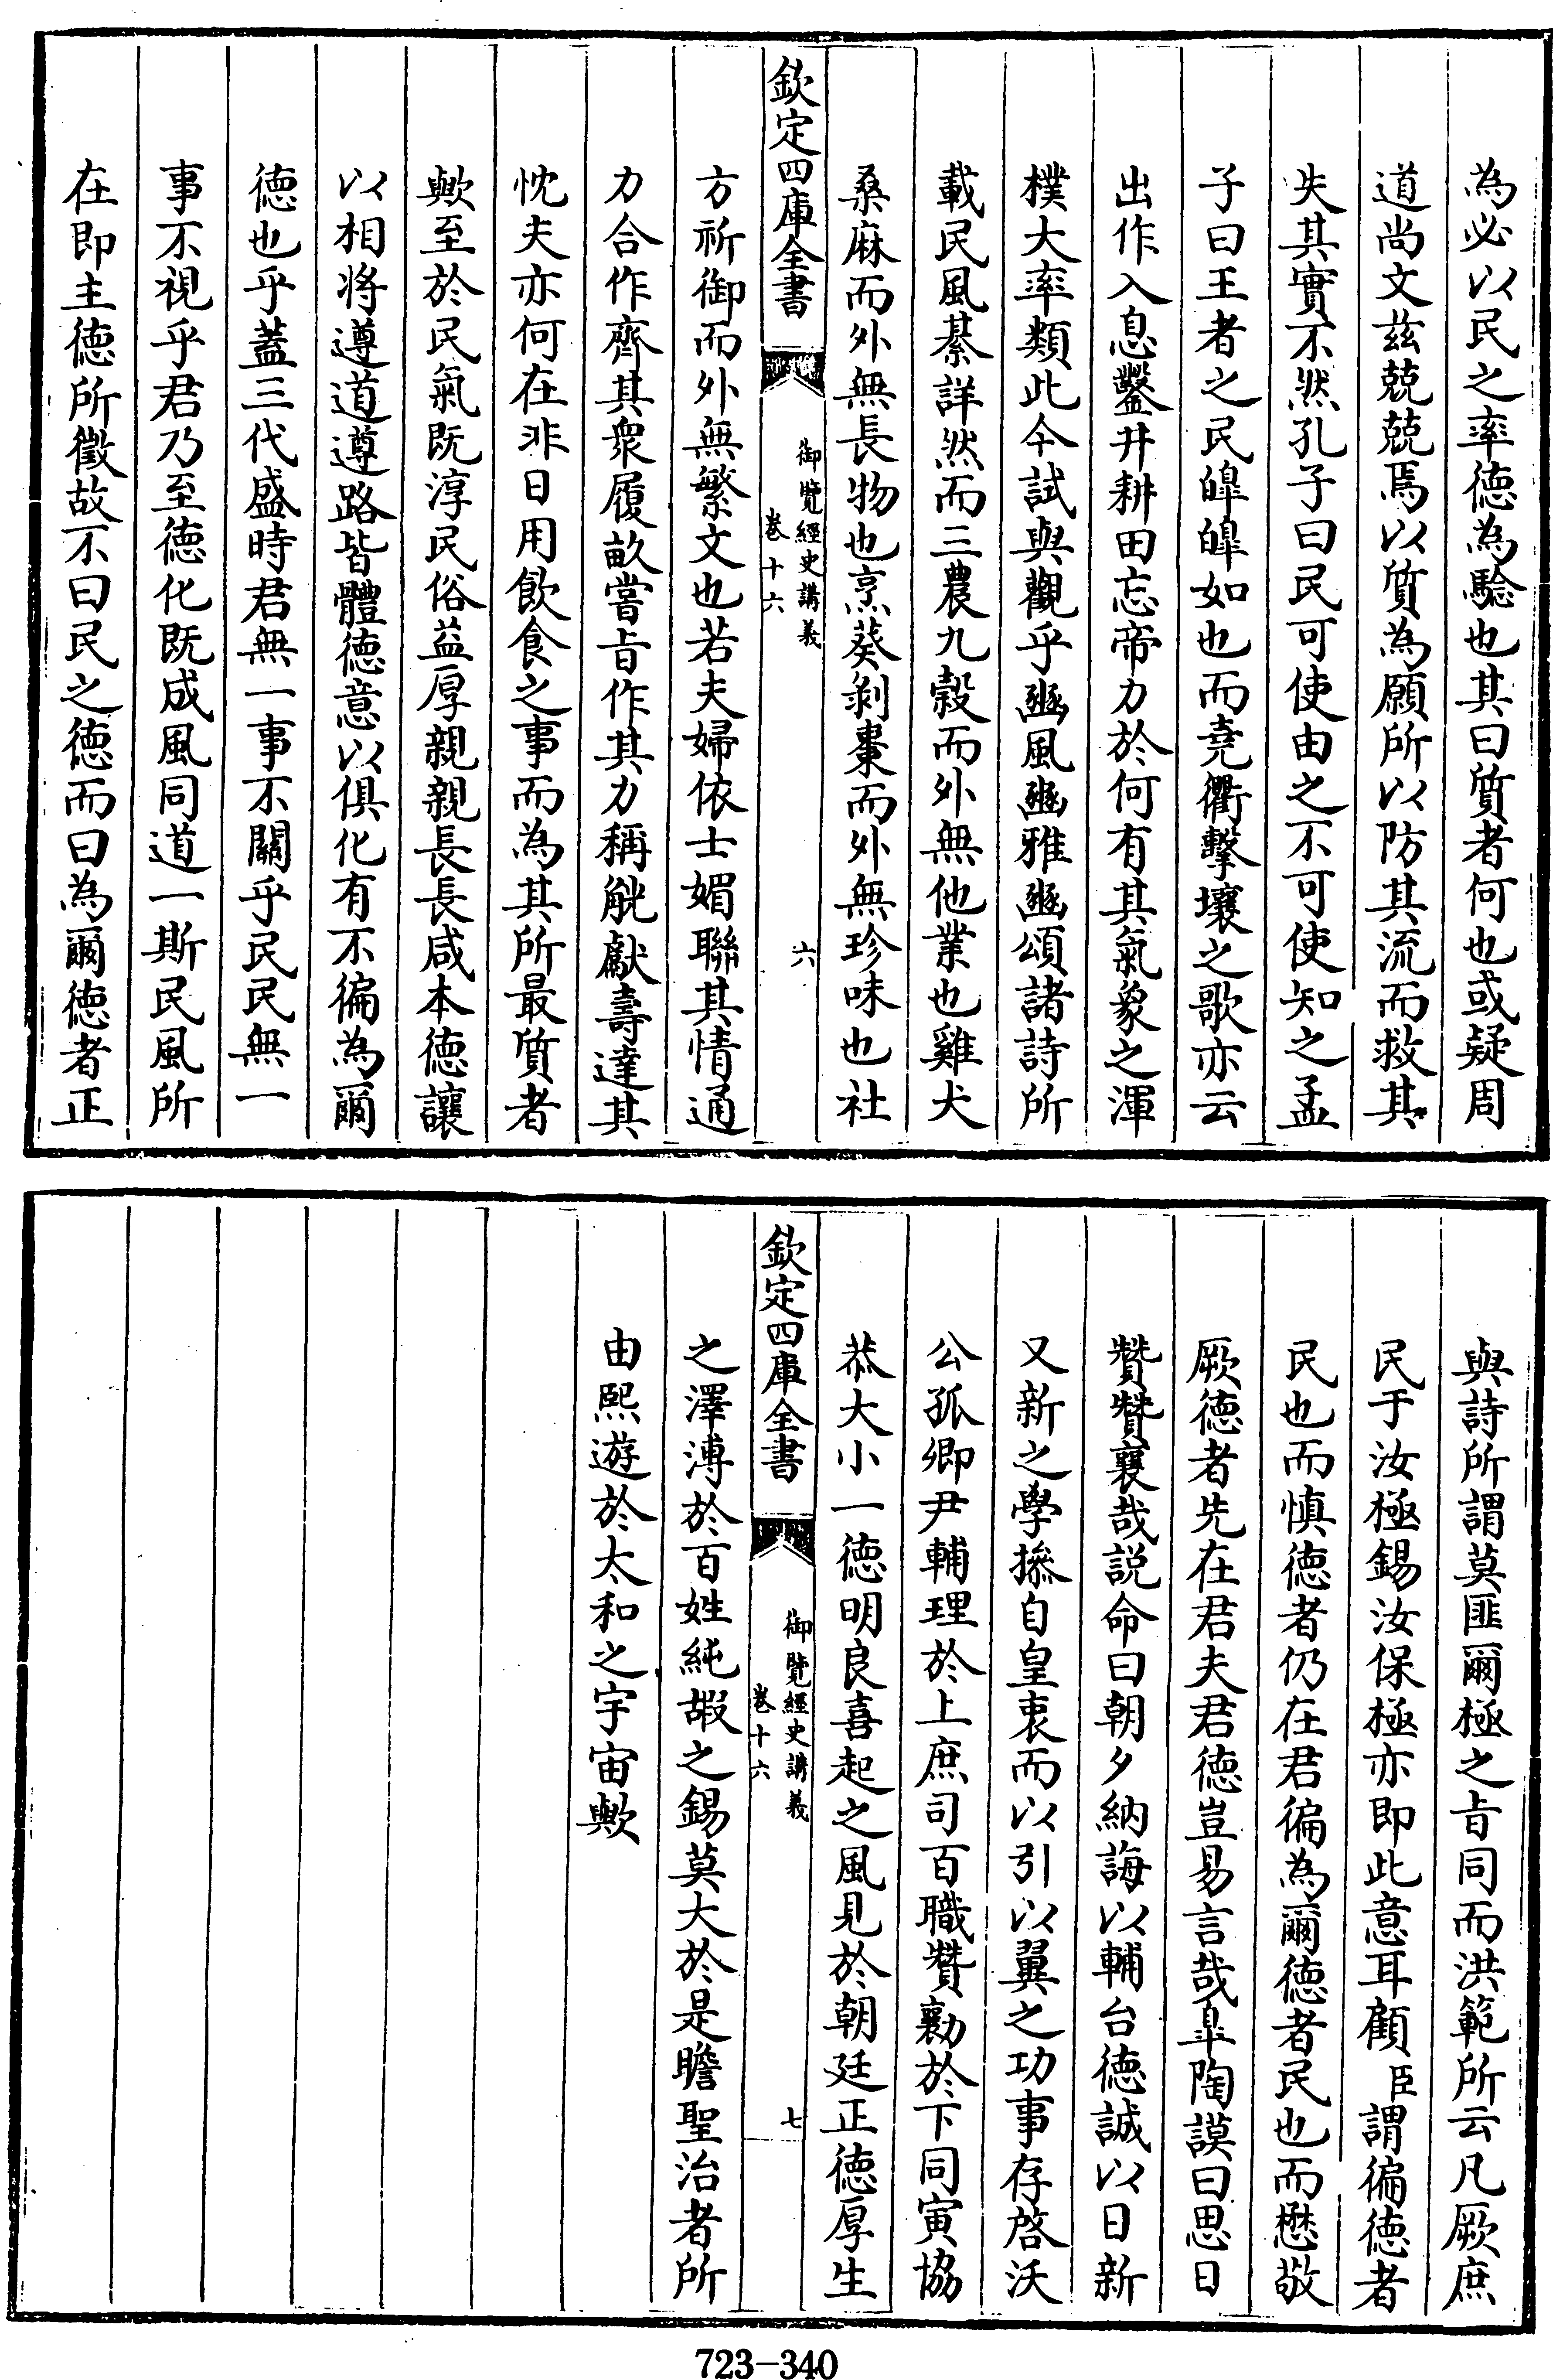 為必以民之率徳為驗也其曰質者何也或疑周
道尚文兹兢兢焉以質為願所以防其流而救其
失其實不然孔子曰民可使由之不可使知之孟
子曰王者之民皥皥如也而堯衢擊壤之歌亦云
出作入息鑿井耕田忘帝力於何有其氣象之渾
樸大率類此今試與觀乎豳風豳雅豳頌諸詩所
載民風綦詳然而三農九穀而外無他業也雞犬
桑麻而外無長物也烹葵剥棗而外無珍味也社
欽定四庫全書
御覽經史講義
卷十六
六
方祈御而外無繁文也若夫婦依士媚聯其情通
力合作齊其衆履畝嘗㫖作其力稱觥獻壽達其
忱夫亦何在非日用飲食之事而為其所最質者
歟至於民氣既淳民俗益厚親親長長咸本徳讓
以相將遵道遵路皆體徳意以俱化有不徧為爾
徳也乎蓋三代盛時君無一事不關乎民民無一
事不視乎君乃至徳化既成風同道一斯民風所
在即主徳所徵故不曰民之徳而曰為爾徳者正
與詩所謂莫匪爾極之㫖同而洪範所云凡厥庶
民于汝極錫汝保極亦即此意耳顧臣謂徧徳者
民也而慎徳者仍在君徧為爾徳者民也而懋敬
厥徳者先在君夫君徳豈易言哉臯陶謨曰思日
贊贊襄哉説命曰朝夕納誨以輔台徳誠以日新
又新之學摻自皇衷而以引以翼之功事存啓沃
公孤卿尹輔理於上庶司百職贊勷於下同寅協
恭大小一徳明良喜起之風見於朝廷正徳厚生
欽定四庫全書
御覽經史講義
卷十六
七
之澤溥於百姓純嘏之錫莫大於是瞻聖治者所
由熙遊於太和之宇宙歟
723-340